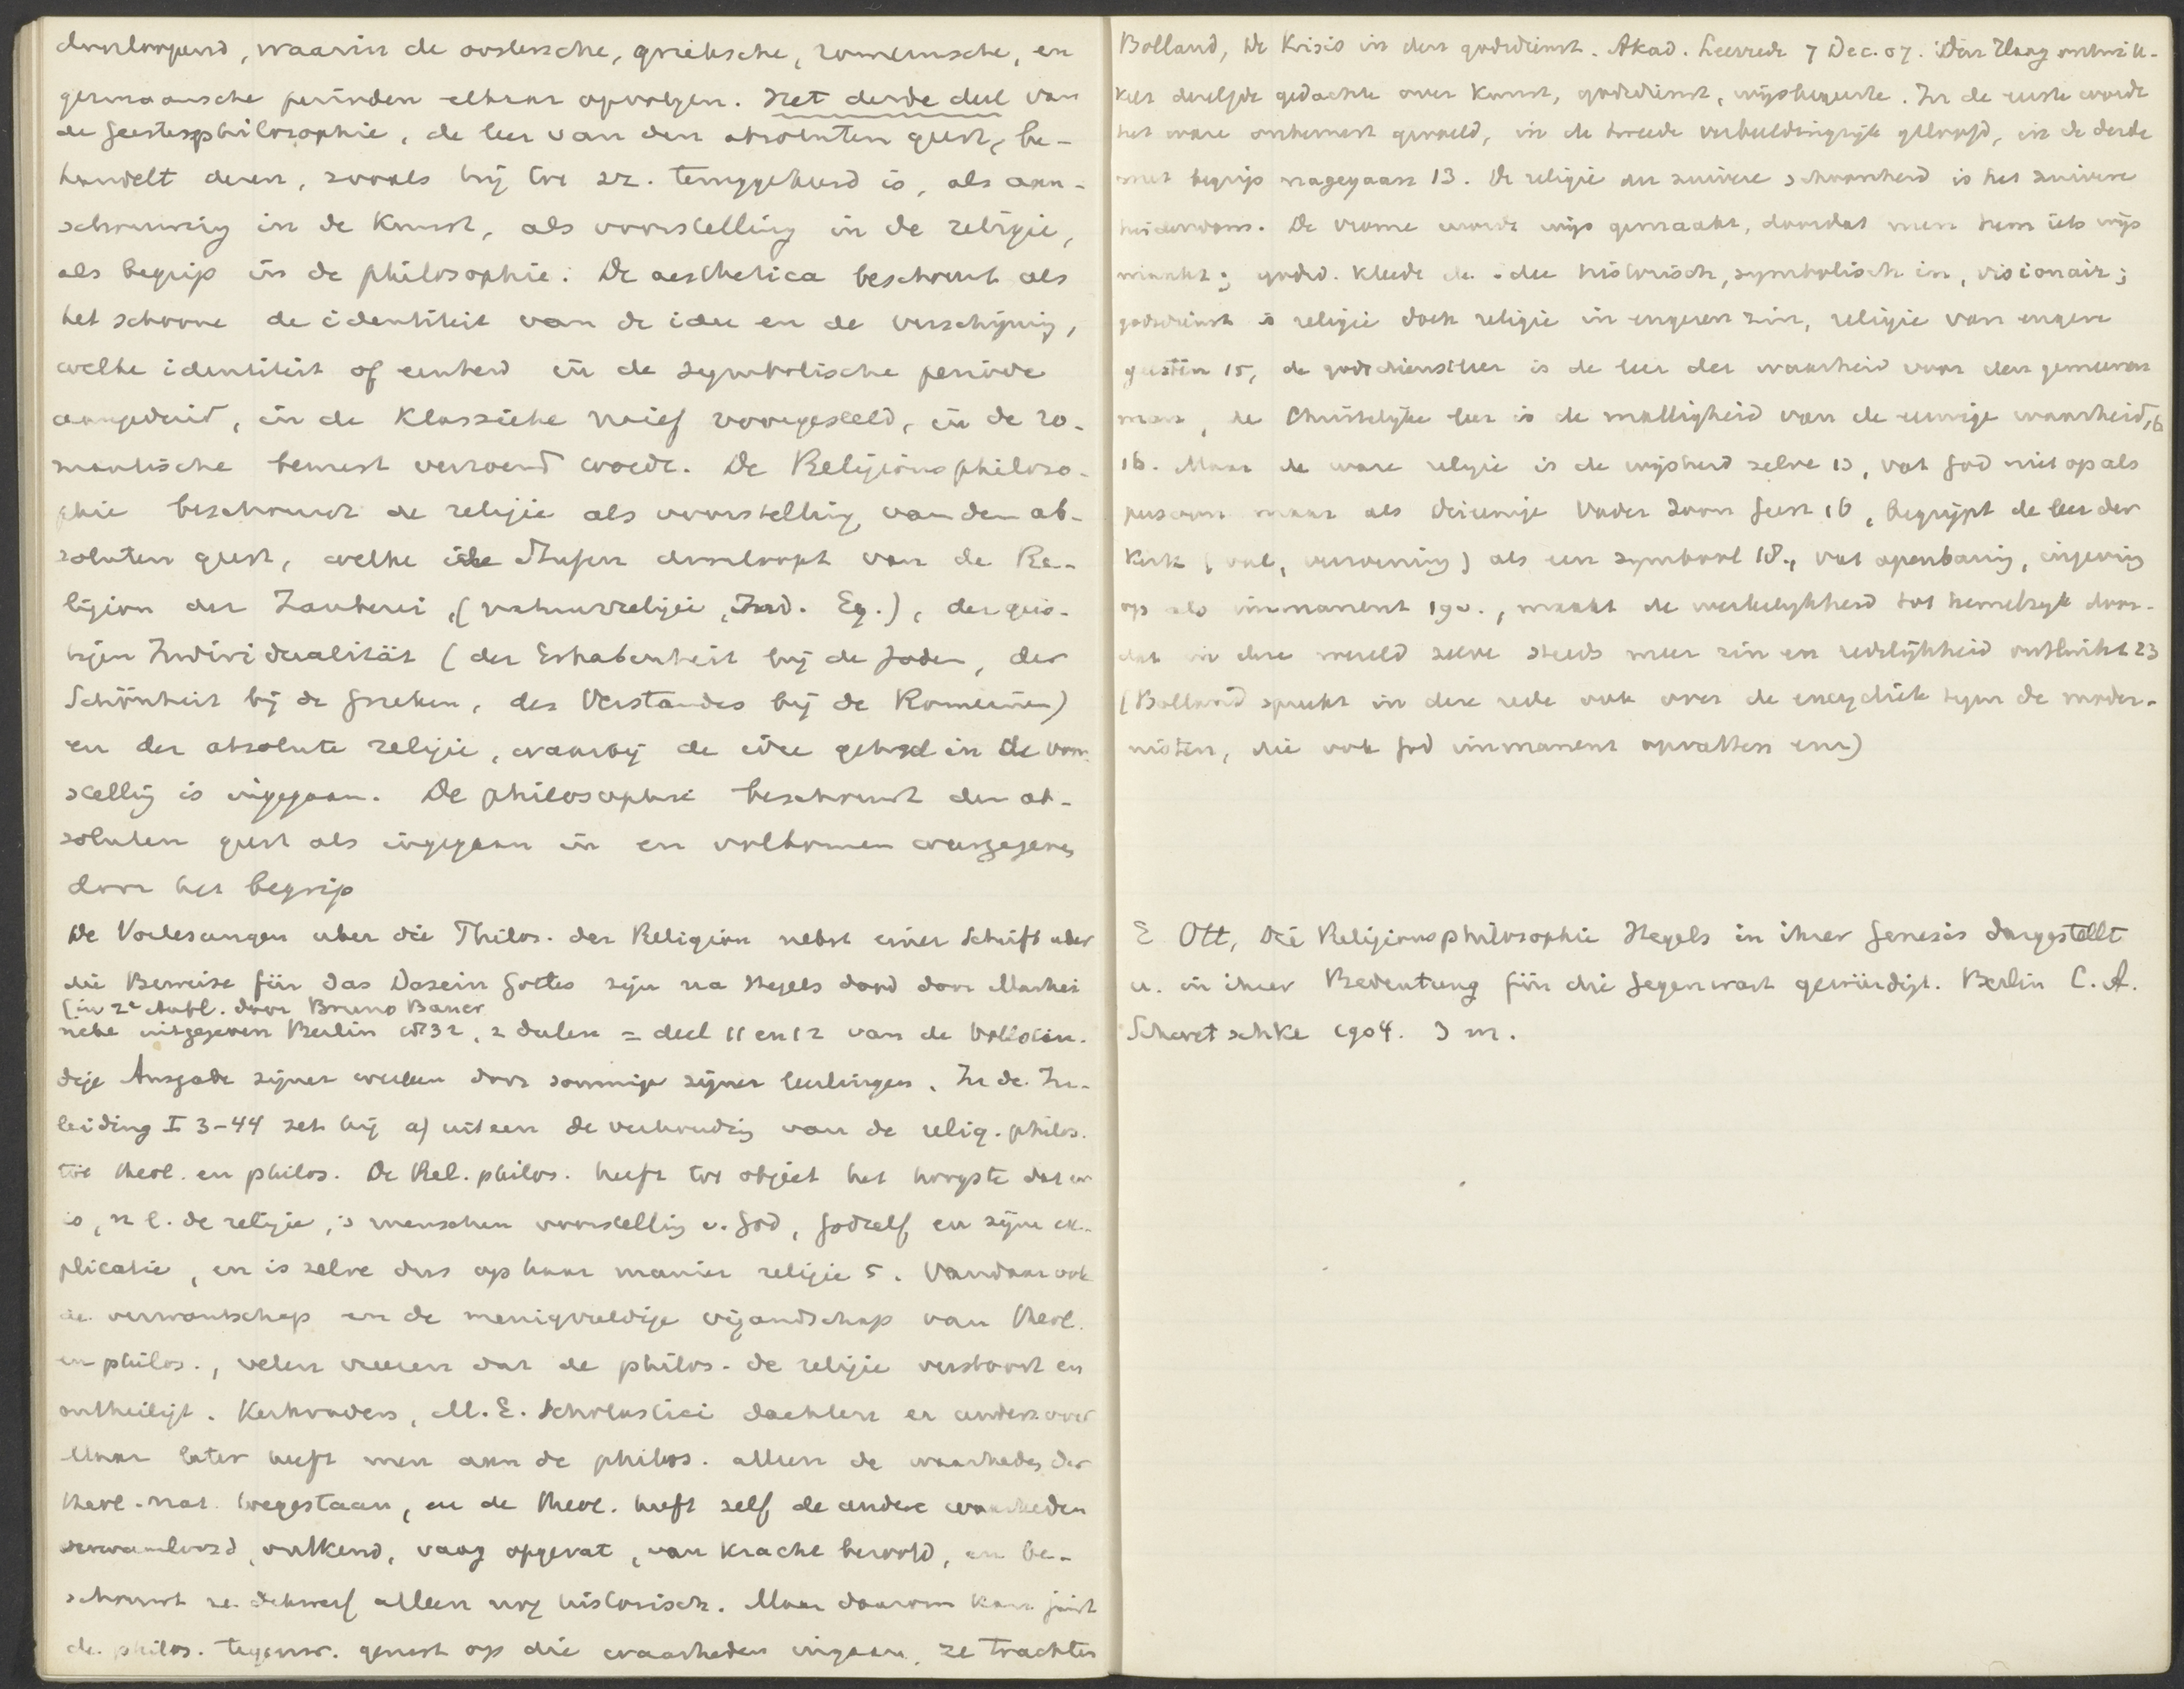 doorloopend, waarin de oostersche, grieksche, romeinsche, en
germaansche perioden elkaar opvolgen. Het derde deel van
de Geestesphilosophie, de leer van den absoluten geest, be-
handelt dezen, zooals hij tot zz. teruggekeerd is, als aan-
schouwing in de Kunst, als voorstelling in de religie,
als begrip in de philosophie. De aesthetica beschouwt als
het schoone de identiteit van de idee en de verschijning,
welke identiteit of eenheid in de symbolische periode
aangeduid, in de Klassieke naief voorgesteld, in de ro-
mantische bewust verzoend wordt. De Religionsphiloso-
phie beschouwt de religie als voorstelling van den ab-
soluten geest, welke de Stufen doorloopt van de Re-
ligion der Zauberei, (natuurreligie, Ind. Eg.), der geis-
tigen Individualität (der Erhabenheit bij de Joden, der
Schönheit bij de Grieken, des Verstandes bij de Romeinen)
en der absolute religie, waarbij de idee geheel in de voor-
stelling is ingegaan. De philosophie beschouwt den ab-
soluten geest als ingegaan in en volkomen weergegeven
door het begrip
De Vorlesungen uber die Philos. der Religion nebst einer Schrift uber
die Beweise für das Dasein Gottes zijn na Hegels dood door Marhei
(in 2e Aufl. door Bruno Bauer
neke uitgegeven Berlin 1832, 2 deelen = deel 11 en 12 van de Vollstän-
dige Ausgabe zijner werken door sommige zijner leerlingen. In de In-
leiding I 3-44 zet hij a) uiteen de verhouding van de relig. philos.
tot theol. en philos. De Rel. philos. heeft tot object het hoogste dat er
is, n l. de religie, 's menschen voorstelling v. God, God zelf, en zijne ex-
plicatie, en is zelve dus op haar manier religie 5. Vandaar ook
de verwantschap en de menigvuldige vijandschap van theol.
en philos., velen vreezen dat de philos. de religie verstoort en
ontheiligt. Kerkvaders, M. E. Scholastici dachten er anders over
Maar later heeft men aan de philos. alleen de waarheden der
theol. nat. toegestaan, en de theol. heeft zelf de andere waarheden
verwaarloosd, ontkend, vaag opgevat, van kracht beroofd, en be-
schouwt ze dikwerf alleen nog historisch. Maar daarom kan juist
de philos. tegenw. gerust op die waarheden ingaan, ze trachten
Bolland, De Krisis in den godsdienst. Akad. Leerrede 7 Dec. 07. Den Haag ontwik-
kelt dezelfde gedachte over Kunst, godsdienst, wijsbegeerte. In de eerste wordt
het ware onbewust gevoeld, in de tweede verbeeldingrijk geloofd, in de derde
met begrip nagegaan 13. De religie der zuivere schoonheid is het zuivere
heidendom. De vrome wordt wijs gemaakt, doordat men hem iets wijs
maakt; godsd. kleedt de idee historisch, symbolisch in, visionair;
godsdienst is religie doch religie in engeren zin, religie van engere
geesten 15, de godsdienstleer is de leer der waarheid voor den gemeenen
man, de Christelijke leer is de malligheid van de eeuwige waarheid, 16
16. Maar de ware religie is de wijsheid zelve 13, vat God niet op als
persoon maar als drieenige Vader Zoon Geest 16, begrijpt de leer der
Kerk (val, verzoening) als een symbool 18., vat openbaring, ingeving
op als immanent 19v., maakt de werkelijkheid tot hemelrijk door-
dat in deze wereld zelve steeds meer zin en redelijkheid ontluikt 23
(Bolland spreekt in deze rede ook over de encycliek tegen de moder-
nisten, die ook God immanent opvatten enz)
E Ott, Die Religionsphilosophie Hegels in ihrer Genesis dargestellt
u. in ihrer Bedeutung für die Gegenwart gewürdigt. Berlin C. A.
Schwetschke 1904. 3 m.